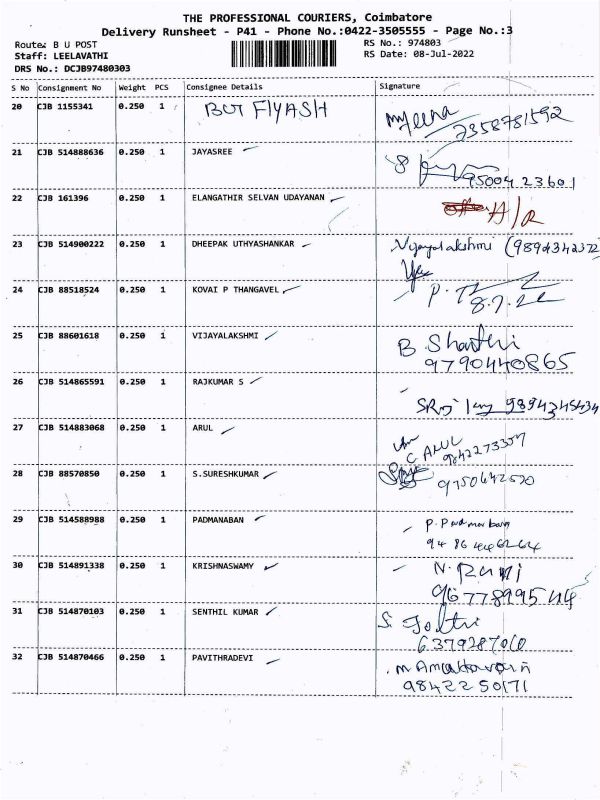 THE PROFESSIONAL COURIERS, Coimbatore
Delivery Runsheet - P41 - Phone No.:0422-3505555 - Page No.:3
Route: B U POST
RS No.: 974803
Staff: LEELAVATHI
RS Date: 08-Jul-2022
DRS No.: DCJB97480303
S No Consignment No Weight PCS Consignee Details Signature
20 CJB 1155341 0.250 1 BUT FLYASH
7358781592
21 CJB 514888636 0.250 1 JAYASREE
95004 23601
22 CJB 161396 0.250 1 ELANGATHIR SELVAN UDAYANAN A/R
23 CJB 514900222 0.250 1 DHEEPAK UTHYASHANKAR Vijayalakshmi (9894342372
24 CJB 88518524 0.250 1 KOVAI P THANGAVEL P.
8.7.22
25 CJB 88601618 0.250 1 VIJAYALAKSHMI B Shanthi
9790440865
26 CJB 514865591 0.250 1 RAJKUMAR S
9894345434
27 CJB 514883068 0.250 1 ARUL C ARUL
9842273357
28 CJB 88570850 0.250 1 S.SURESHKUMAR 9750642520
29 CJB 514588988 0.250 1 PADMANABAN P. Padmanaban
94 86 446264
30 CJB 514891338 0.250 1 KRISHNASWAMY N. Rani
9677899544
31 CJB 514870103 0.250 1 SENTHIL KUMAR S
6379287060
32 CJB 514870466 0.250 1 PAVITHRADEVI
98422 50171